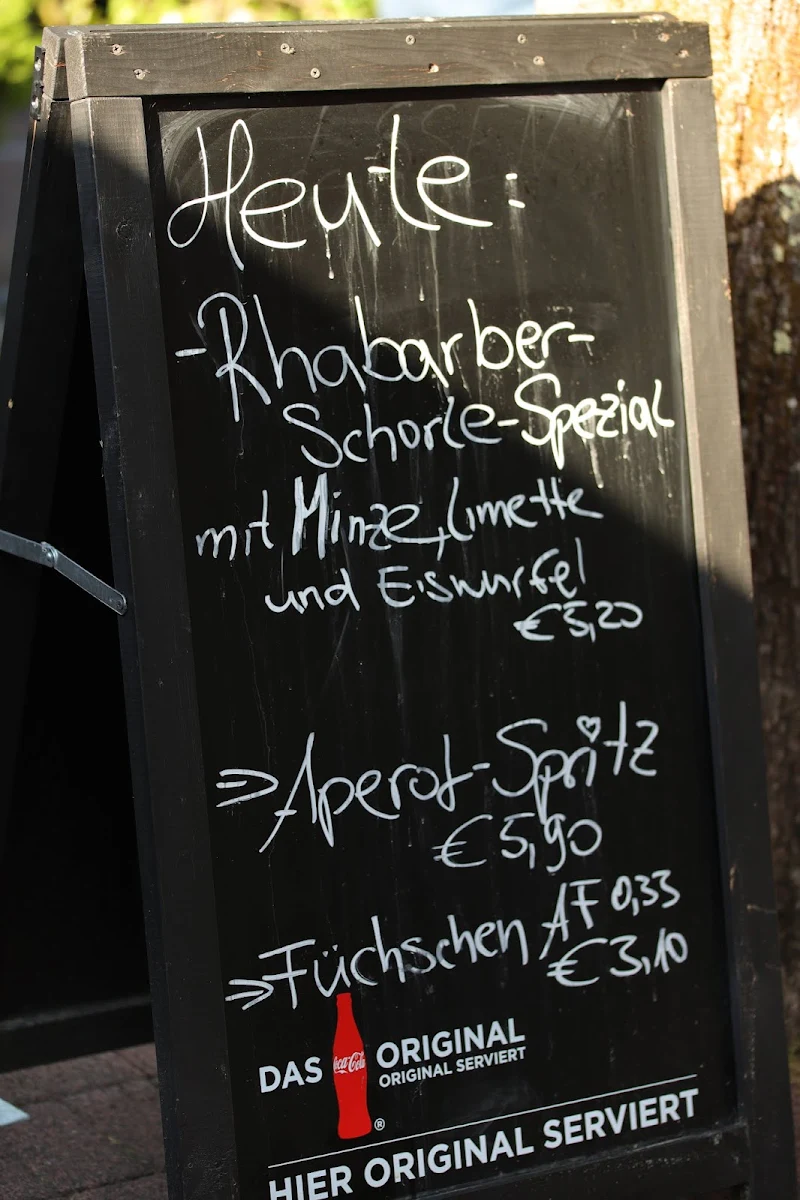 Heute:
-Rhabarber-
Schorle-Spezial
mit Minze, Limette
und Eiswürfel
€5,20
⇒Aperol-Spritz
€5,90
⇒Füchschen AF 0,33
€3,10
DAS Coca-Cola ORIGINAL
ORIGINAL SERVIERT
®
HIER ORIGINAL SERVIERT